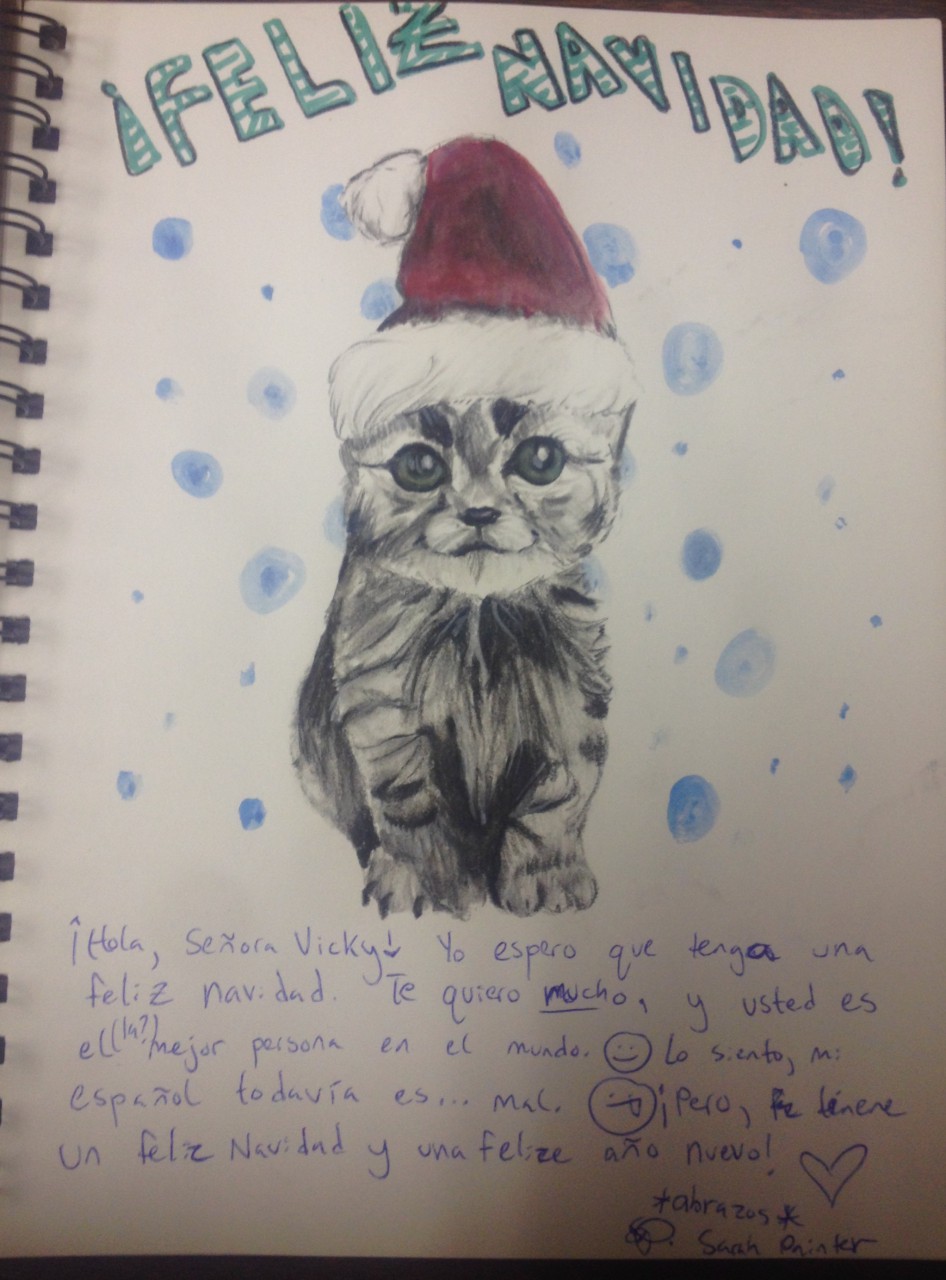 ¡FELIZ NAVIDAD!
¡Hola, Señora Vicky! Yo espero que tenga una
feliz navidad. Te quiero mucho, y usted es
el (la?) mejor persona en el mundo. Lo siento, mi
español todavía es... mal. ¡Pero,
un feliz Navidad y una felize año nuevo!
*abrazos*
Sarah Painter